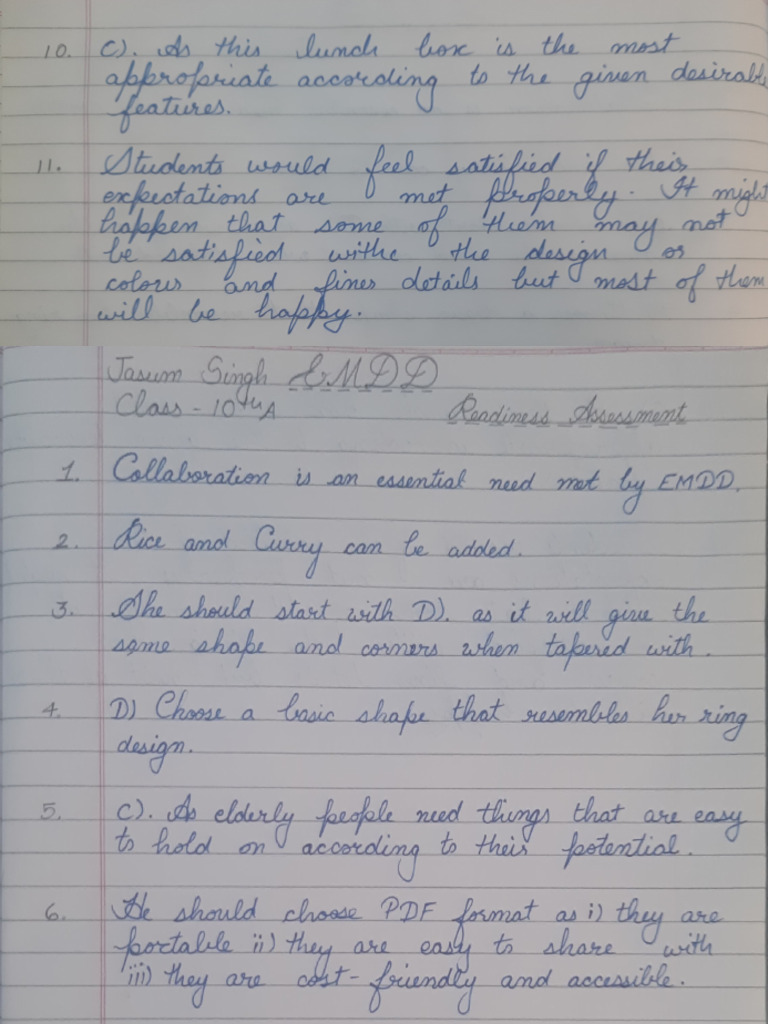 10. C). As this lunch box is the most
appropriate according to the given desirable
features.
11. Students would feel satisfied if their
expectations are met properly. It might
happen that some of them may not
be satisfied withe the design or
colour and finer details but most of them
will be happy.
Jasum Singh EMDD
Class - 10th A Readiness Assessment
1. Collaboration is an essential need met by EMDD.
2. Rice and Curry can be added.
3. She should start with D). as it will give the
same shape and corners when tapered with.
4. D) Choose a basic shape that resembles her ring
design.
5. C). As elderly people need things that are easy
to hold on according to their potential.
6. He should choose PDF format as i) they are
portable ii) they are easy to share with
iii) they are cost-friendly and accessible.